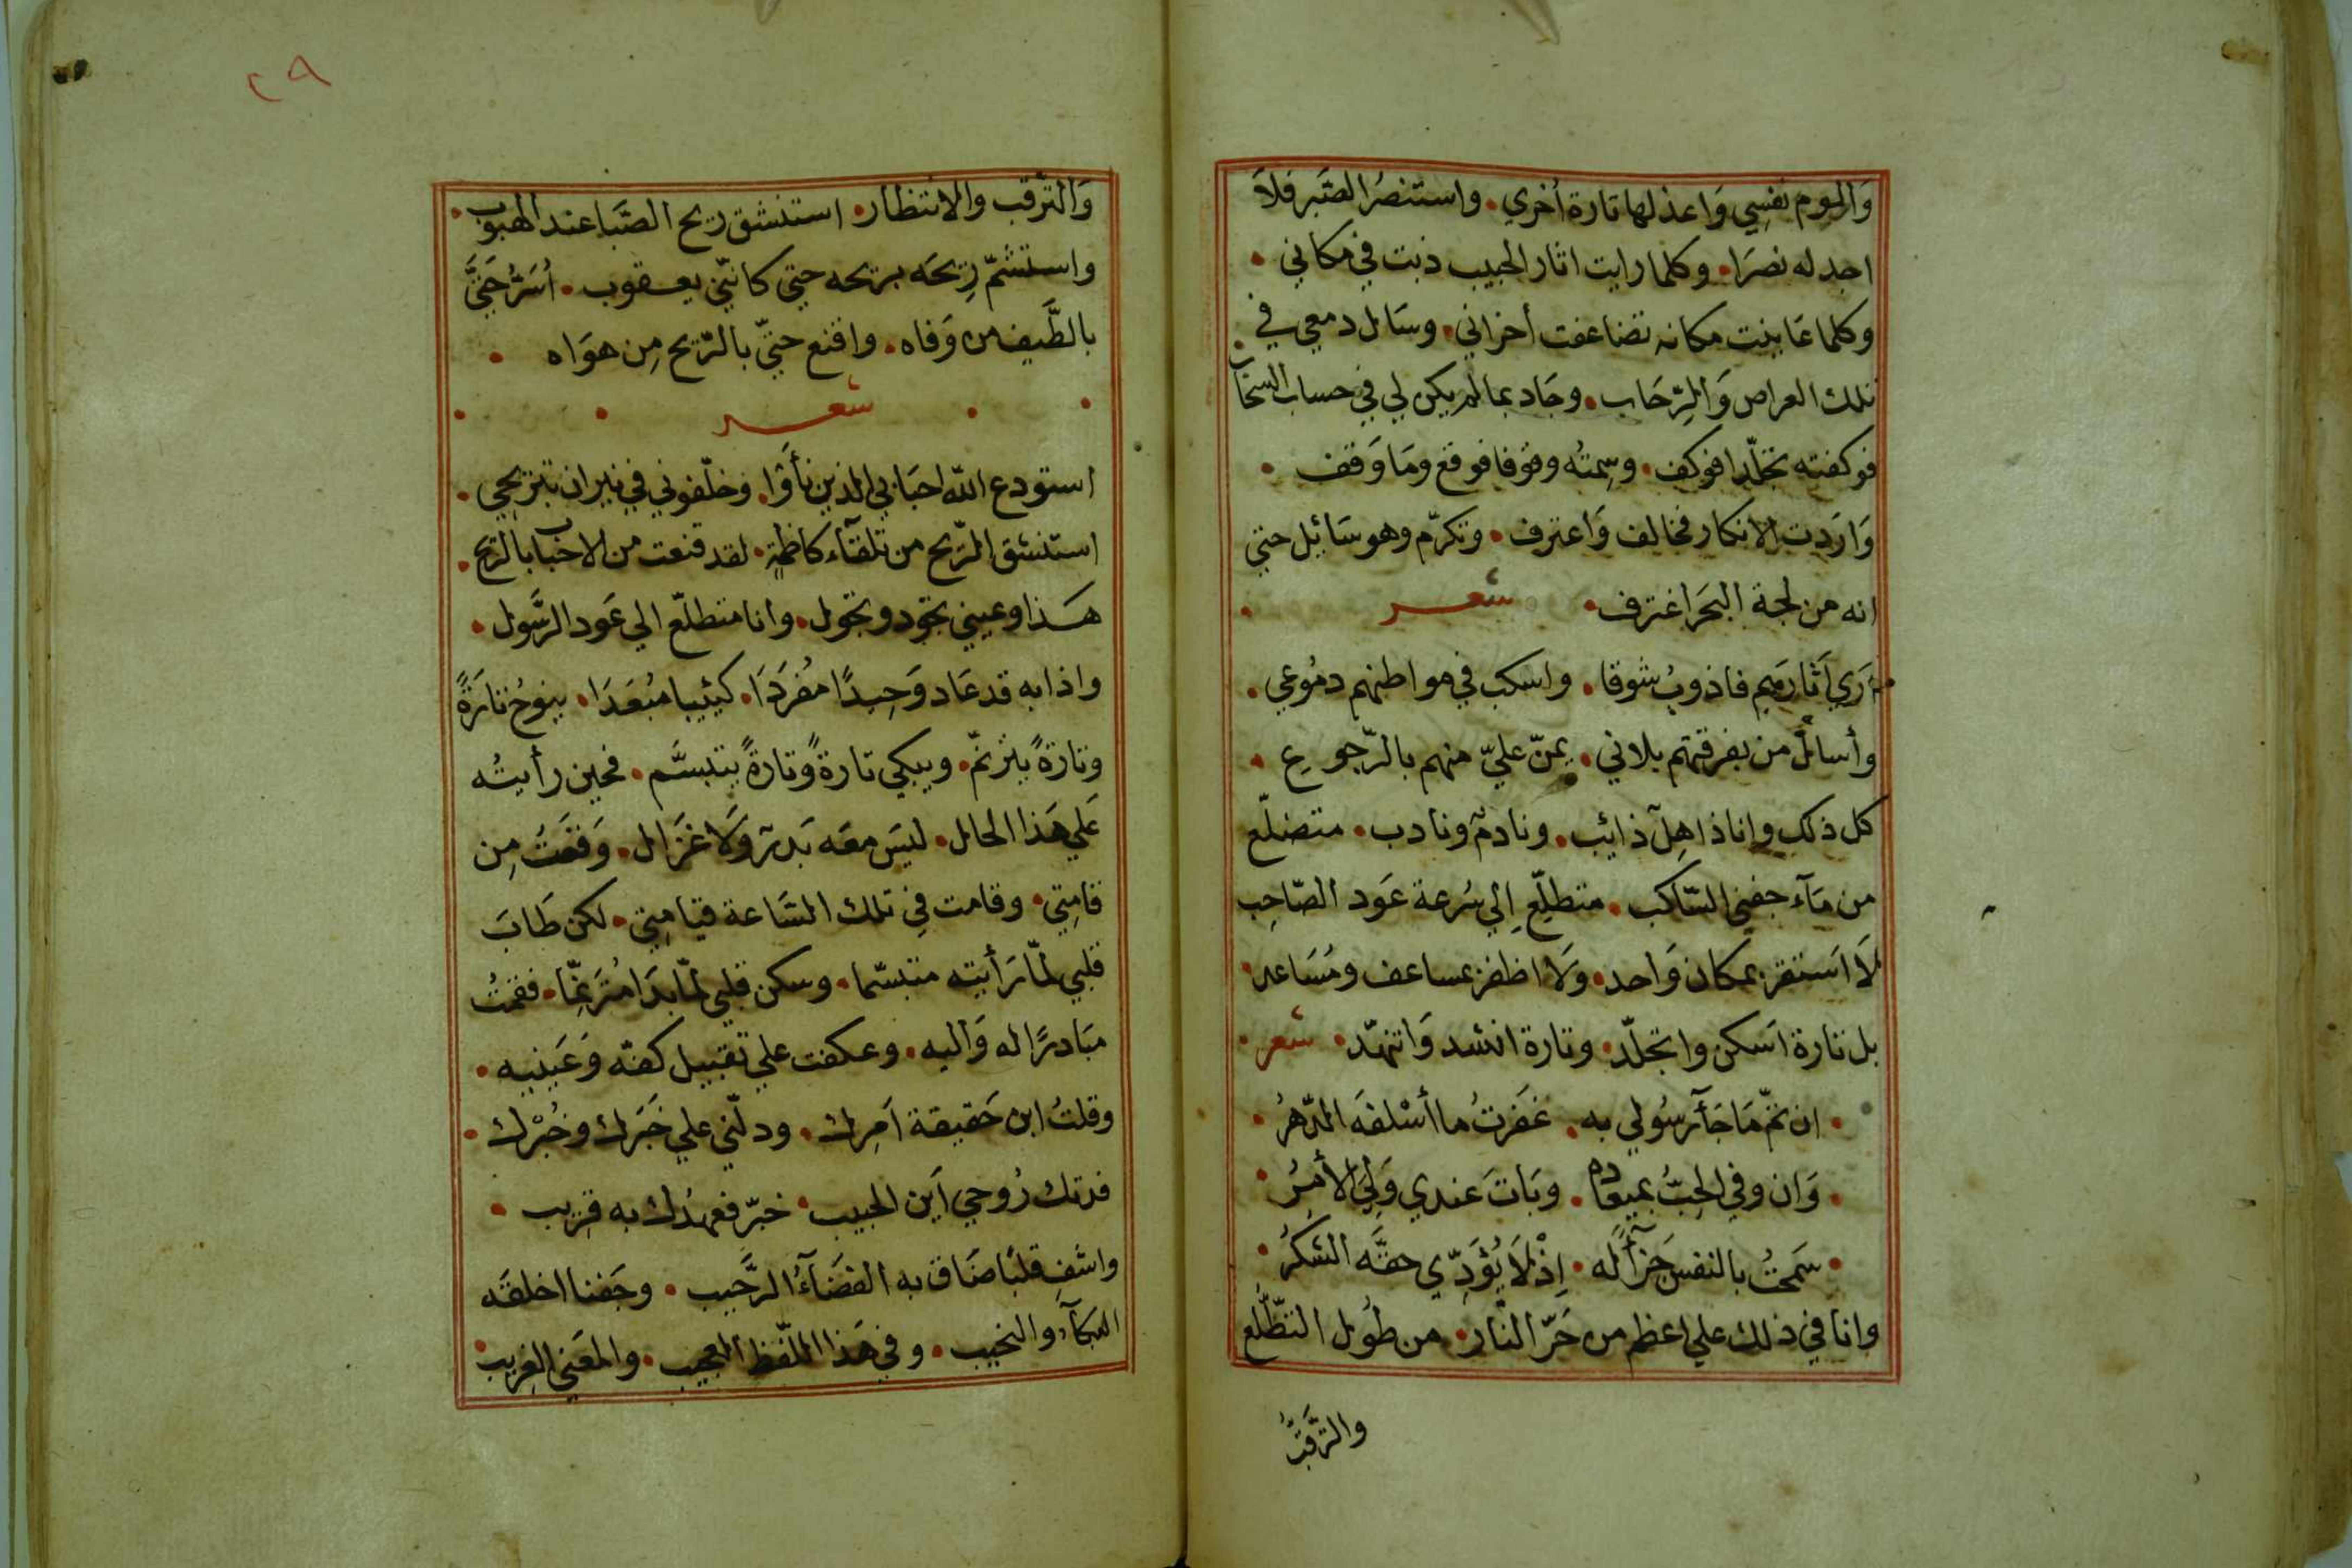 وَالوم نفسِي وَاعذلها تارة أخري. واستنصرُ الصَّبر فلاَ
اجد له نصرَا. وكلما رايت اثار الحبيب ذبت في مكاني.
وكلما عَاينت مكانه تضاعفت أحزاني. وسَال دمعي في
تلك العراص وَالرِّحَاب. وجَاد بما لم يكن لي في حساب السحاب.
فوكفته تجلّدا فوكف. وسِمتُه وقوفا فوقع ومَا وَقف.
وَارَدت الانكار فخالف وَاعترف. وتكرّم وهو سَائِل حتي
انه من لجة البحَر اغترف. شعر.
أرَي آثارَهم فاذوبُ شوقا. واسكب في مواطنهم دمُوعي.
وأسألُ من بفرقتهم بلاني. يمنّ عليّ منهم بالرّجوعِ.
كل ذلك وانا ذاهِلٌ ذائب. ونادمٌ ونادب. متضلّع
من مَآء جفني السّاكب. متطلِّع إلي سُرعة عَود الصّاحِب
لاَ اَستقر بمكان وَاحد. وَلاَ اظفر بمساعف ومُسَاعد.
بل تارة اَسكن واتجلّد. وتارة انشد وَاتنهّد. شعر.
. ان تمّ مَا جَآ رسُولي به. غفَرتُ ما أسْلفَه الدّهرُ.
. وَان وفي الحِبُّ بميعاده. وبَاتَ عندي وَلِيَ الأمرُ.
. سَمحتُ بالنفس جَزآءً له. إذْ لاَ يُؤدِّي حقَّه الشكرُ.
وانا في ذلك علي اعظم من حَرّ النّار. من طُول التطّلّع
والترقبُ
٢٩
وَالترّقب والانتظار. استنشق ريح الصَّبَا عند الهبوب.
واستشمّ رِيحَه بريحه حتي كانّني يعقوب. أُسَرُّ حَتيَّ
بالطَّيف من وَفاه. واقنع حتيّ بالرّيح مِن هوَاه.
. . شعر . .
استودع الله احبَابي الذين نأوا. وخلّفوني في نيران تبريحي.
استنشق الرّيح من تلقآء كاظمةٍ. لقد قنعت من الاحباب بالريح.
هَذا وعيني تجود وتجول. وانا متطلّع الي عَود الرَّسول.
واذا به قد عَاد وَحِيدًا مُفرَدَا. كئيبا مبُعَدَا. ينوحُ تارَةً
وتارةً يترنّم. ويبكي تارةً وتارةً يتبسَّم. فحين رأيتُه
عَلي هَذا الحال. ليسَ معَه بَدرٌ وَلاَ غزَال. وَقعَتُ مِن
قامِتي. وقامت فِي تلك السَّاعة قيامِتي. لكن طَابَ
قلبي لمّا رَأيته متبسّما. وسكن قلبي لمّا بدَا مُترَنّمِّا. فقمتُ
مبَادرًا له وَاليه. وعكفت علي تقبيل كفّه وَعَينيه.
وقلتُ ابن حَقيقة اَمِرك. ودلّني علي خَبَرك وخُبْرك.
فدتك رُوحي اَين الحبيب. خبّر فعهدُك به قرِيب.
واشفِ قلبًا ضَاق به الفضَآءُ الرَّحَيب. وجَفنا اخلقَه
البكآءُ والنحيب. وفي هَذا اللّفظ العجيب. والمعَني الغرِيب.